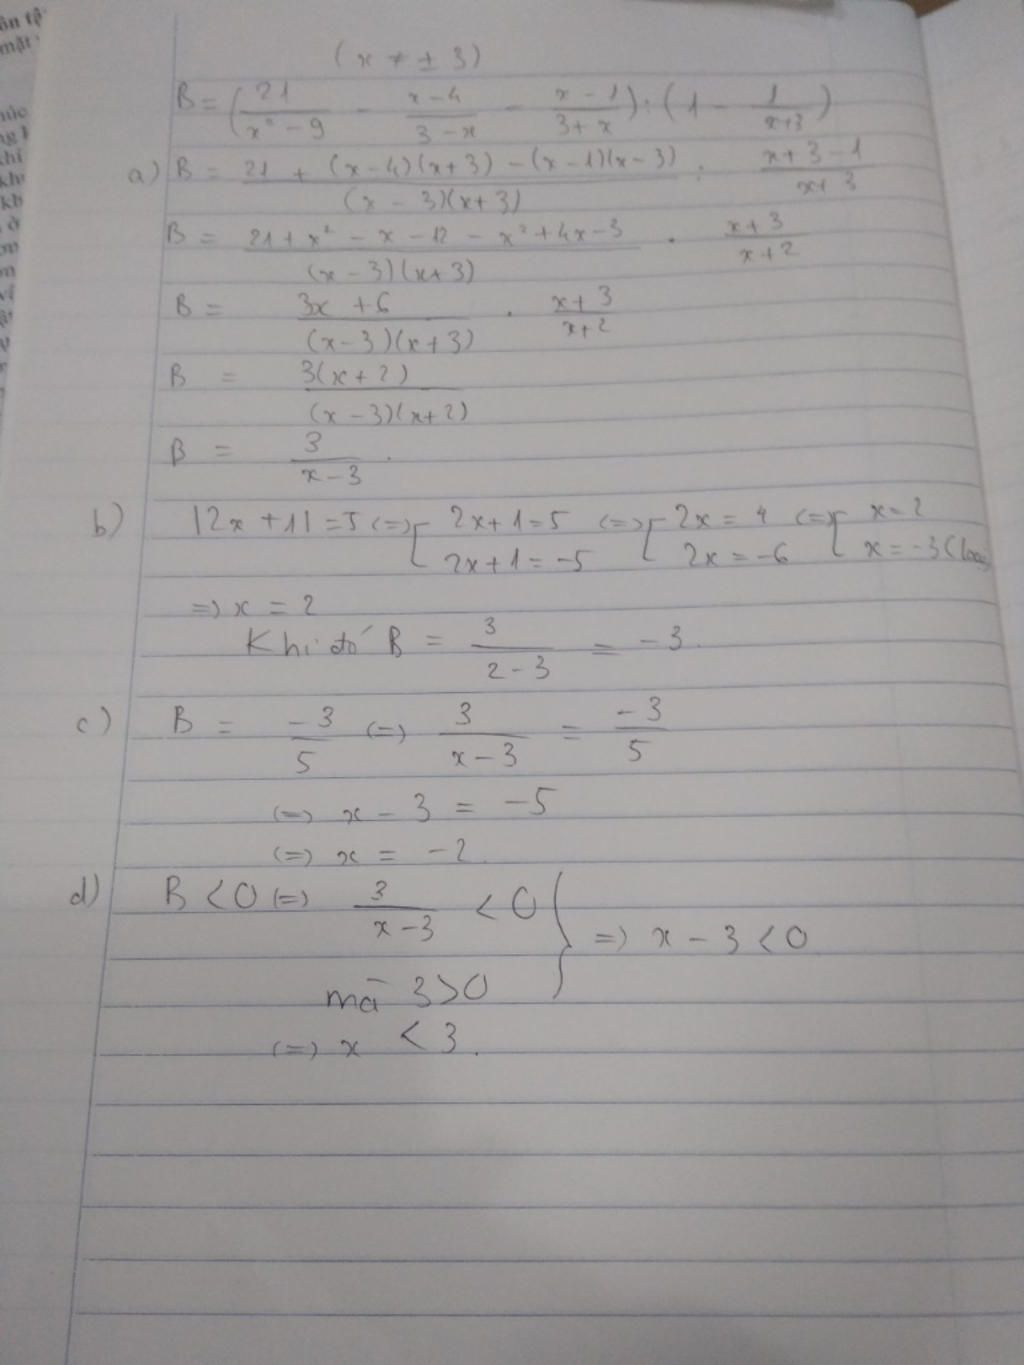 ôn tậ
mặt
(x ≠ ± 3)
B = (21/(x² - 9) - (x - 4)/(3 - x) - (x - 1)/(3 + x)) : (1 - 1/(x+3))
a) B = (21 + (x - 4)(x + 3) - (x - 1)(x - 3))/((x - 3)(x + 3)) : (x + 3 - 1)/(x + 3)
B = (21 + x² - x - 12 - x² + 4x - 3)/((x - 3)(x + 3)) . (x + 3)/(x + 2)
B = (3x + 6)/((x - 3)(x + 3)) . (x + 3)/(x + 2)
B = 3(x + 2)/((x - 3)(x + 2))
B = 3/(x - 3).
b) |2x + 1| = 5 (=) [ 2x + 1 = 5 (=) [ 2x = 4 (=) [ x = 2
2x + 1 = -5 2x = -6 x = -3 (loại)
=) x = 2
Khi đó B = 3/(2 - 3) = -3.
c) B = -3/5 (=) 3/(x - 3) = -3/5
(=) x - 3 = -5
(=) x = -2
d) B < 0 (=) 3/(x - 3) < 0 } =) x - 3 < 0
mà 3 > 0
(=) x < 3.